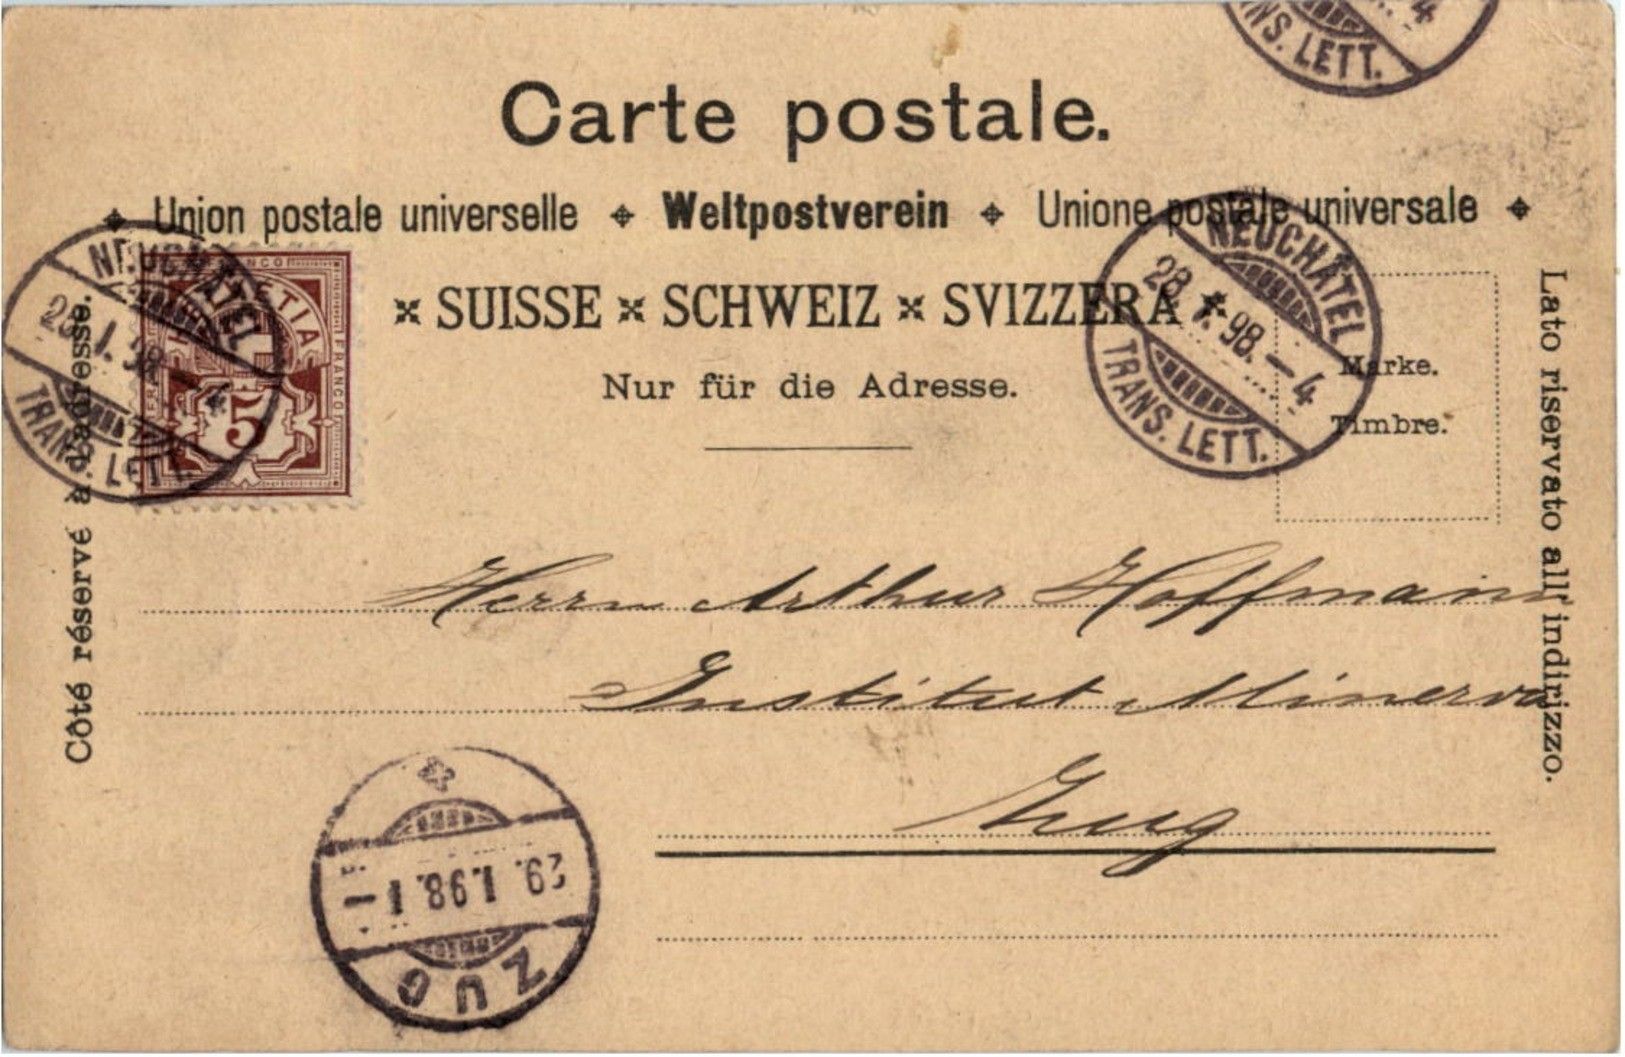 TRANS. LETT.
Carte postale.
Union postale universelle Weltpostverein Unione postale universale
SUISSE SCHWEIZ SVIZZERA
Nur für die Adresse.
Marke.
Timbre.
Côté réservé à l'adresse.
Lato riservato all' indirizzo.
FRANCO
HELVETIA
FRANCO
FRANCO
5
NEUCHÂTEL
28. I. 98. – 4
TRANS. LETT.
NEUCHÂTEL
28. I. 98. – 4
TRANS. LETT.
Herrn Arthur Hoffmann
Institut Minerva
Zug
29. I. 98. 1 –
ZUG